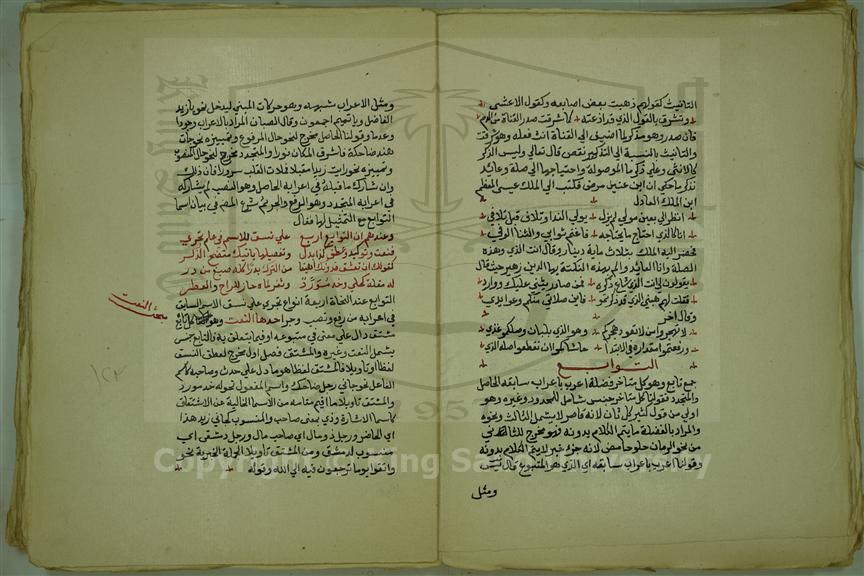 التانيث كقولهم ذهبت بعض اصابعه وكقول الاعشى
وتشرق بالقول الذي قد اذعته كما شرقت صدر القناة من الدم
فان صدر وهو مذكر لما اضيف الى القناة انث فعله وهو شرقت
والتانيث بالنسبة الى التذكير نقص قال تعالى وليس الذكر
كالانثى وعلى ذكر ما الموصولة واحتياجها الى صلة وعائد
نذكر ما حكي ان ابن عنين مرض فكتب الى الملك عيسى المعظم
ابن الملك العادل
انظر الي بعين مولى لم يزل يولي الندا وتلاف قبل تلافي
انا كالذي احتاج ما يحتاجه فاغنم ثوابي والثنا الوافي
فحضر اليه الملك بثلاث ماية دينار وقال انت الذي وهذه
الصلة وانا العائد والم بهذه النكتة بها الدين زهير حيث قال
يقولون لي انت الذي شاع ذكره فمن صادر يثني عليك ووارد
فقلت لهم هبني الذي قد ذكرتمو فاين صلاتي منكم وعوايدي
وقال اخر
وهو الذي بلبان وصلكم غذي
ورفعتم مقداره في الابتدا حاشاكموا ان تقطعوا صلة الذي
التوابع
جمع تابع وهو كل متاخر فضلة اعرب باعراب سابقه الحاصل
والمتجدد فقولنا كل متاخر جنس شامل للمحدود وغيره وهو
اولى من قول كثير كل ثان لانه قاصر لا يشمل الثالث ونحوه
والمراد بالفضلة ما يتم الكلام بدونه فهو مخرج للثاني
من نحو الرمان حلو حامض لانه جزء خبر لا يتم الكلام بدونه
وقولنا اعرب باعراب سابقه اي الذي هو المتبوع قال يس
ومثل
ومثل الاعراب شبهه وهو حركات المبني ليدخل نحو يا زيد
الفاضل ويا تميم اجمعون وقال الصبان المراد بالاعراب وجودا
وعدما وقولنا الحاصل مخرج لنحو حال المرفوع وتمييزه نحو جات
هند ضاحكة فاشرق المكان نورا والمتجدد مخرج لنحو حال المنصوب
وتمييزه نحو رايت زيدا مقبلا فملات القلب سرورا فان ذلك
وان شارك ما قبله في اعرابه الحاصل وهو النصب لم يشاركه
في اعرابه المتجدد وهو الرفع والجر ثم شرع المصنف في بيان اسما
التوابع مع التمثيل لها فقال
وعندهم ان التوابع اربع على نسق للاسم في علم تجري
فنعت وتوكيد وعطف كذا بدل وتفصيلها ياتيك متضح الذكر
كقولك ان تعشق فدونك اهيفا من الترك بدرا كله صيغ من در
له مقلة كحلى وخد مورد وثغر لماه حاز للراح والعطر
التوابع عند النحاة اربعة انواع تجري على نسق الاسم السابق
في اعرابه من رفع ونصب وجر احدها النعت وهو تابع
مشتق دال على معنى في متبوعه او فيما يتعلق به فالتابع جنس
يشمل النعت وغيره والمشتق فصل اول مخرج لعطف النسق
لفظا او تاويلا فالمشتق لفظا هو ما دل على حدث وصاحبه كاسم
الفاعل نحو جاني رجل ضاحك واسم المفعول نحو له خد مورد
والمشتق تاويلا ما اقيم مقامه من الاسما الخالية عن الاشتقاق
كاسما الاشارة وذي بمعنى صاحب والمنسوب كجاني زيد هذا
اي الحاضر ورجل ذو مال اي صاحب مال ورجل دمشقي اي
منسوب لدمشق ومن المشتق تاويلا الجملة الخبرية نحو
واتقوا يوما ترجعون فيه الى الله وقوله
مبحث النعت
١٢٢